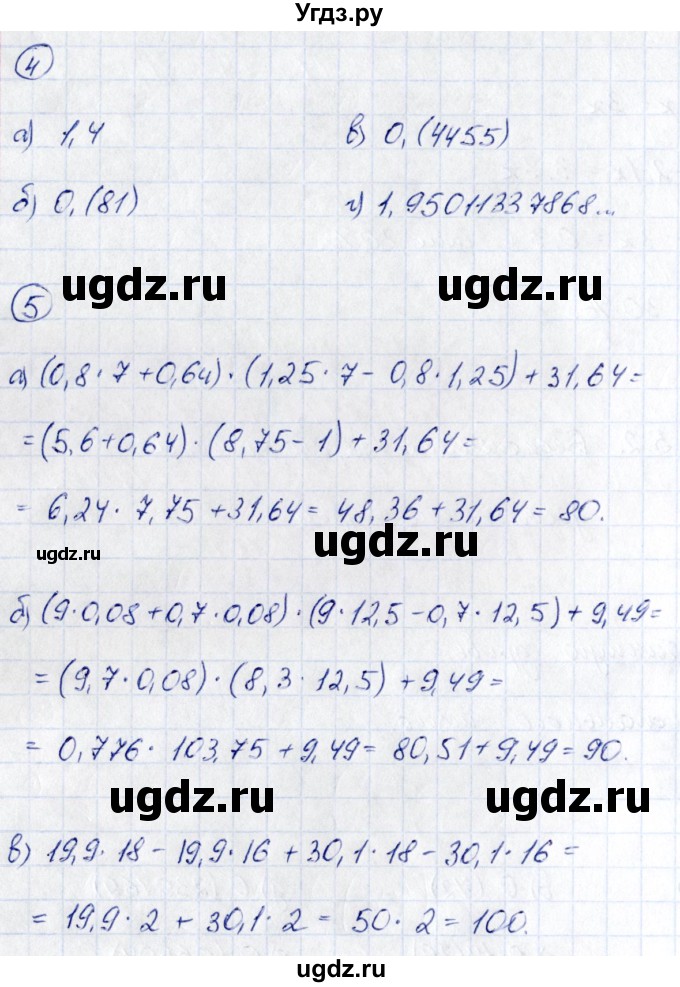 Угдз.ру
4
а) 1,4
в) 0,(4455)
б) 0,(81)
г) 1,95011337868...
ugdz.ru ugdz.ru
5
а) (0,8·7+0,64)·(1,25·7-0,8·1,25)+31,64=
=(5,6+0,64)·(8,75-1)+31,64=
= 6,24·7,75+31,64=48,36+31,64=80.
ugdz.ru ugdz.ru
б) (9·0,08+0,7·0,08)·(9·12,5-0,7·12,5)+9,49=
=(9,7·0,08)·(8,3·12,5)+9,49=
= 0,776·103,75+9,49=80,51+9,49=90.
ugdz.ru ugdz.ru
в) 19,9·18-19,9·16+30,1·18-30,1·16=
= 19,9·2+30,1·2=50·2=100.
ugdz.ru